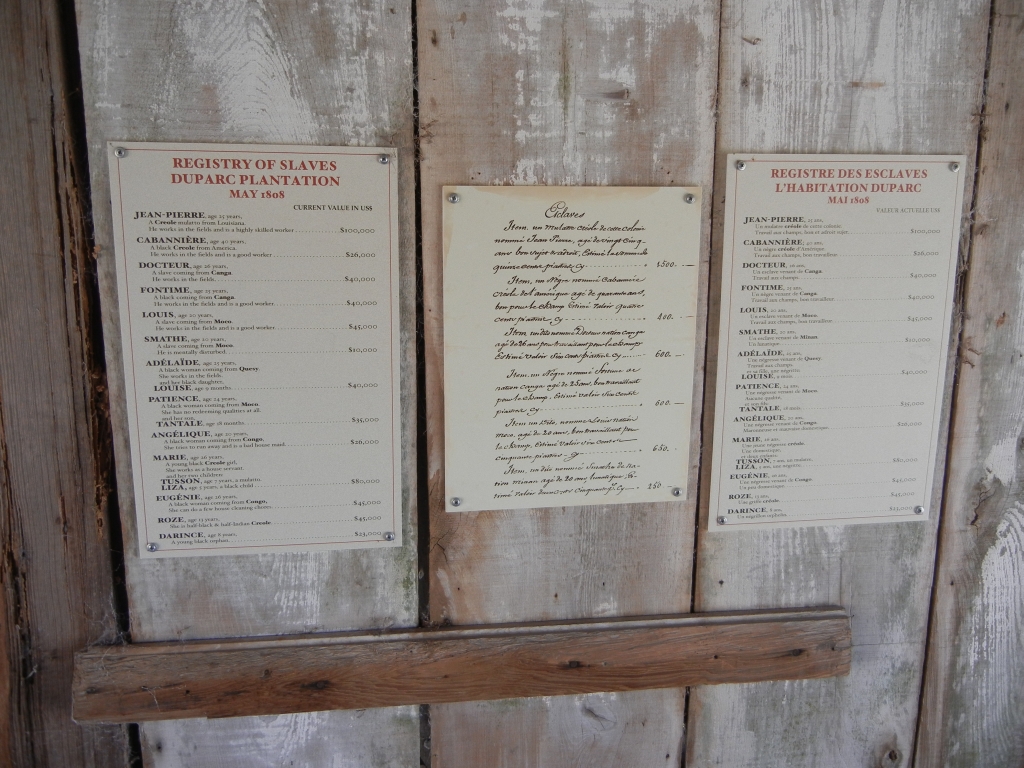 REGISTRY OF SLAVES
DUPARC PLANTATION
MAY 1808
CURRENT VALUE IN US$
JEAN-PIERRE, age 25 years,
A Creole mulatto from Louisiana.
He works in the fields and is a highly skilled worker $100,000
CABANNIÈRE, age 40 years,
A black Creole from America.
He works in the fields and is a good worker $26,000
DOCTEUR, age 26 years,
A slave coming from Canga.
He works in the fields. $40,000
FONTIME, age 25 years,
A black coming from Canga.
He works in the fields and is a good worker. $40,000
LOUIS, age 20 years,
A slave coming from Moco.
He works in the fields and is a good worker. $45,000
SMATHE, age 20 years,
A slave coming from Moco.
He is mentally disturbed. $10,000
ADÉLAÏDE, age 25 years,
A black woman coming from Quesy.
She works in the fields.
and her black daughter,
LOUISE, age 9 months. $40,000
PATIENCE, age 24 years,
A black woman coming from Moco.
She has no redeeming qualities at all.
and her son,
TANTALE, age 18 months $35,000
ANGÉLIQUE, age 20 years,
A black woman coming from Congo.
She tries to run away and is a bad house maid $26,000
MARIE, age 26 years,
A young black Creole girl.
She works as a house servant.
and her two children;
TUSSON, age 7 years, a mulatto.
LIZA, age 5 years, a black child $80,000
EUGÉNIE, age 26 years,
A black woman coming from Congo,
She can do a few house cleaning chores. $45,000
ROZE, age 13 years,
She is half black & half Indian Creole. $45,000
DARINCE, age 8 years,
A young black orphan. $23,000
Esclaves
Item, un mulatre créole de cette Colonie
nommé Jean Pierre, agé de vingt Cinq
ans, bon sujet et adroit, Estimé la somme de
quinze cents piastres, Cy 1500.
Item, un Nègre nommé Cabannié
créole de l'amérique agé de quarante ans,
bon pour le champ, Estimé valoir quatre
cents piastres, Cy 400.
Item, un dés nommé Docteur nation Canga
agé de 26 ans pour travaillant pour le champ
Estimé valoir Six Cents piastres, Cy 600.
Item, un Nègre nommé
nation Canga, agé de 25 ans, bon travaillant
pour le champ, Estimé valoir Six Cents
piastres, Cy 600.
Item, un nommé Louis nation
moco, agé de 20 ans, bon travaillant pour
le champ, Estimé valoir Six Cents
cinquante piastres 650.
Item, un dés nommé Smathe de Na-
tion minan agé de 20 ans lunatique, Es-
timé valoir Cy 250
REGISTRE DES ESCLAVES
L'HABITATION DUPARC
MAI 1808
VALEUR ACTUELLE US$
JEAN-PIERRE, 25 ans,
Un mulatre créole de cette colonie.
Travail aux champs, bon et adroit sujet. $100,000
CABANNIÈRE, 40 ans,
Un nègre créole d'Amérique.
Travail aux champs, bon travailleur $26,000
DOCTEUR, 26 ans,
Un esclave venant de Canga.
Travail aux champs. $40,000
FONTIME, 25 ans,
Un nègre venant de Canga.
Travail aux champs, bon travailleur. $40,000
LOUIS, 20 ans,
Un esclave venant de Moco.
Travail aux champs, bon travailleur. $45,000
SMATHE, 20 ans,
Un esclave venant de Minan.
Un lunatique. $10,000
ADÉLAÏDE, 25 ans,
Une négresse venant de Quesy.
Travail aux champs.
LOUISE, 9 mois. $40,000
PATIENCE, 24 ans,
Une négresse venant de Moco.
Aucune qualité.
et son fils,
TANTALE, 18 mois. $35,000
ANGÉLIQUE, 20 ans,
Une négresse venant de Congo.
Marronneuse et mauvaise domestique. $26,000
MARIE, 26 ans,
Une jeune négresse créole.
Une domestique.
et deux enfants;
TUSSON, 7 ans, un mulatre,
LIZA, 5 ans, une négrite. $80,000
EUGÉNIE, 26 ans,
Une négresse venant de Congo.
Un peu domestique. $45,000
ROZE, 13 ans,
Une griffe créole. $45,000
DARINCE, 8 ans,
Un négrillon orphelin. $23,000